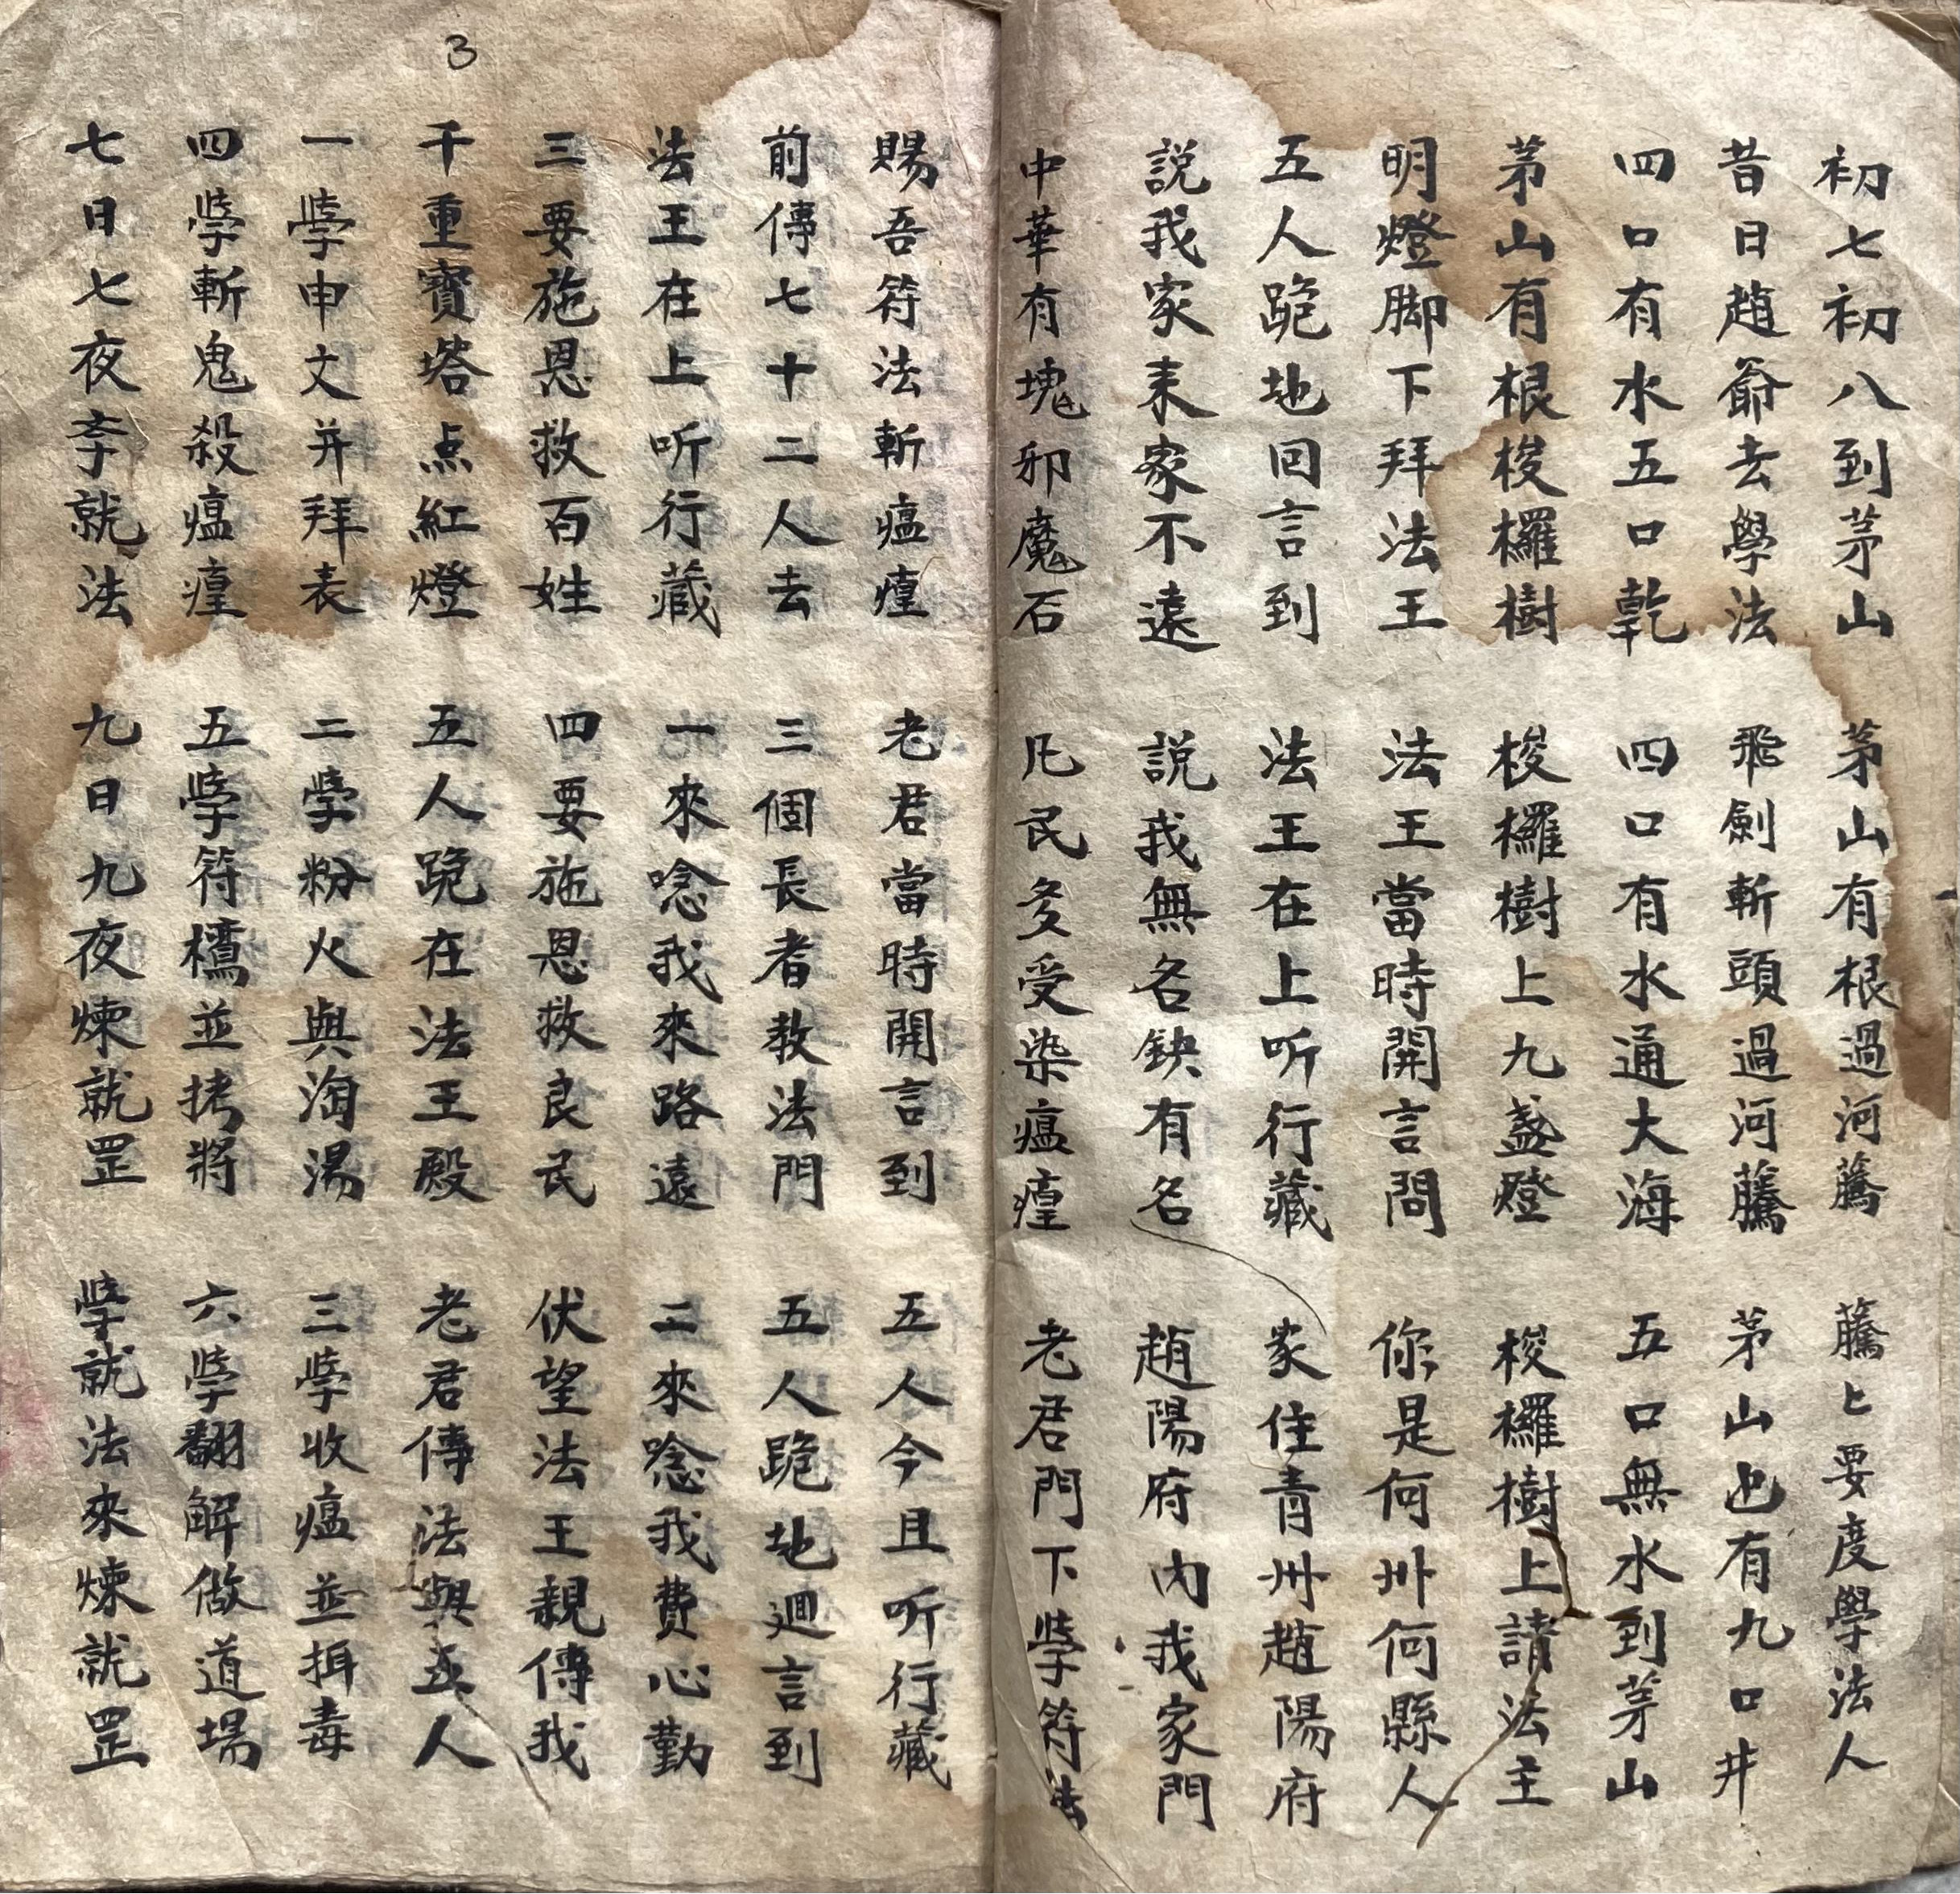 初七初八到茅山 茅山有根過河藤 藤〻要度學法人
昔日趙爺去學法 飛劍斬頭過河藤 茅山也有九口井
四口有水五口乾 四口有水通大海 五口無水到茅山
茅山有根梭欏樹 梭欏樹上九盞燈 梭欏樹上請法主
明燈脚下拜法王 法王當時開言問 你是何州何縣人
五人跪地回言到 法王在上听行藏 家住青州趙陽府
説我家来家不遠 説我無名缺有名 趙陽府內我家門
中華有塊邪魔石 凡民多受染瘟瘽 老君門下斈符法
賜吾符法斬瘟瘽 老君當時開言到 五人今且听行藏
前傳七十二人去 三個長者教法門 五人跪地迴言到
法王在上听行藏 一來唸我來路遠 二來唸我費心勤
三要施恩救百姓 四要施恩救良民 伏望法王親傳我
千重寶塔点紅燈 五人跪在法王殿 老君傳法與五人
一斈申文并拜表 二斈粉火與淘湯 三斈收瘟並揖毒
四斈斬鬼殺瘟瘽 五斈符檄並拷將 六斈翻解做道場
七日七夜斈就法 九日九夜煉就罡 斈就法來煉就罡
3